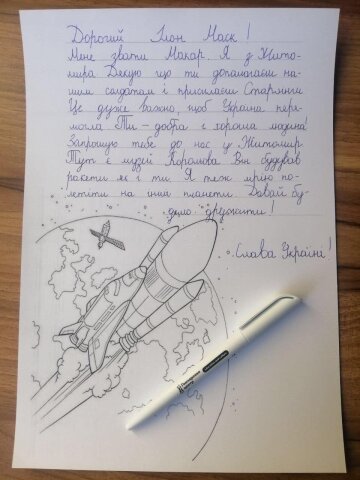 Дорогий Ілон Маск!
Мене звати Макар. Я з Жито-
мира Дякую що ти допомагаєш на-
шим солдатам і присилаєш Старлінки
Це дуже важно, щоб Україна пере-
могла Ти – добра і хороша людина!
Запрошую тебе до нас у Житомир
Тут є музей Корольова Він будував
ракети як і ти. Я теж мрію по-
летіти на інші планети. Давай бу-
демо дружити!
Слава Україні!